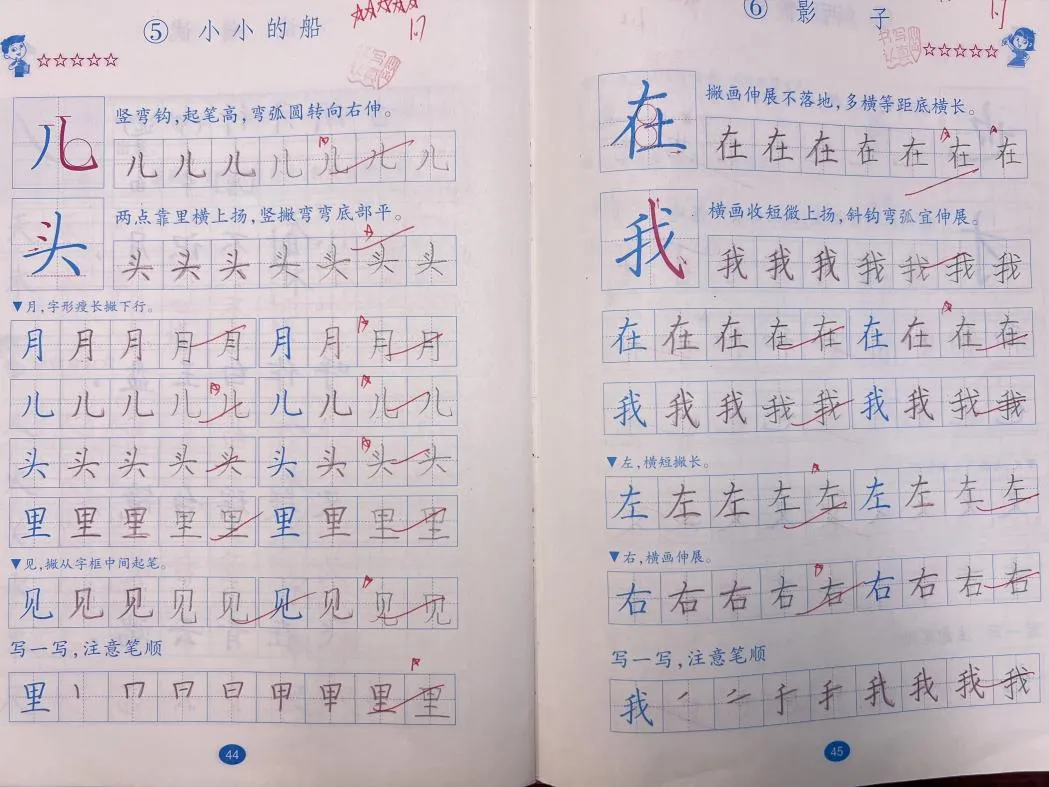 ⑤ 小小的船
☆☆☆☆☆
1.7
书写认真
儿
竖弯钩,起笔高,弯弧圆转向右伸。
儿 儿 儿 儿 儿 儿 儿
头
两点靠里横上扬,竖撇弯弯底部平。
头 头 头 头 头 头 头
▼月,字形瘦长撇下行。
月 月 月 月 月 月 月 月 月
儿 儿 儿 儿 儿 儿 儿 儿 儿
头 头 头 头 头 头 头 头 头
里 里 里 里 里 里 里 里 里
▼见,撇从字框中间起笔。
见 见 见 见 见 见 见 见 见
写一写,注意笔顺
里 丨 冂 日 日 甲 里 里 里
44
⑥ 影子
1.7
书写认真
☆☆☆☆☆
在
撇画伸展不落地,多横等距底横长。
在 在 在 在 在 在 在
我
横画收短微上扬,斜钩弯弧宜伸展。
我 我 我 我 我 我 我
在 在 在 在 在 在 在 在 在
我 我 我 我 我 我 我 我 我
▼左,横短撇长。
左 左 左 左 左 左 左 左 左
▼右,横画伸展。
右 右 右 右 右 右 右 右 右
写一写,注意笔顺
我 我 我 我 我
45